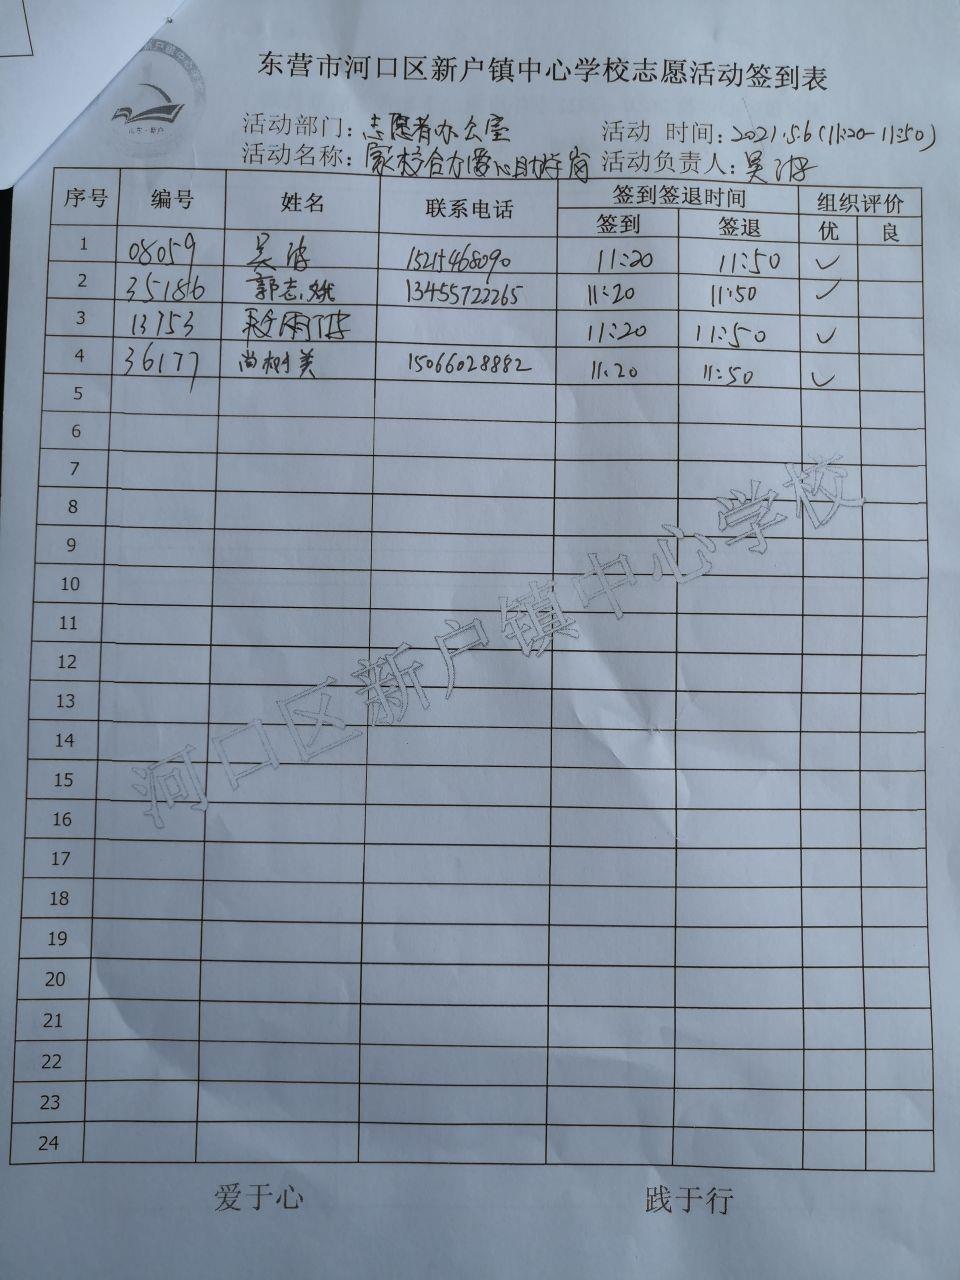 东营市河口区新户镇中心学校志愿活动签到表
活动部门：志愿者办公室 活动 时间：2021.5.6（11:20-11:50）
活动名称：家校合力爱心助学岗 活动负责人：吴
序号 编号 姓名 联系电话 签到签退时间 组织评价
签到 签退 优 良
1 08059 吴 15215468090 11:20 11:50 ✓
2 35186 郭志 13455722265 11:20 11:50 ✓
3 13753 雨 11:20 11:50 ✓
4 36177 尚树美 15066028882 11:20 11:50 ✓
5
6
7
8
9
10
11
12
13
14
15
16
17
18
19
20
21
22
23
24
河口区新户镇中心学校
爱于心 践于行
山东·新户